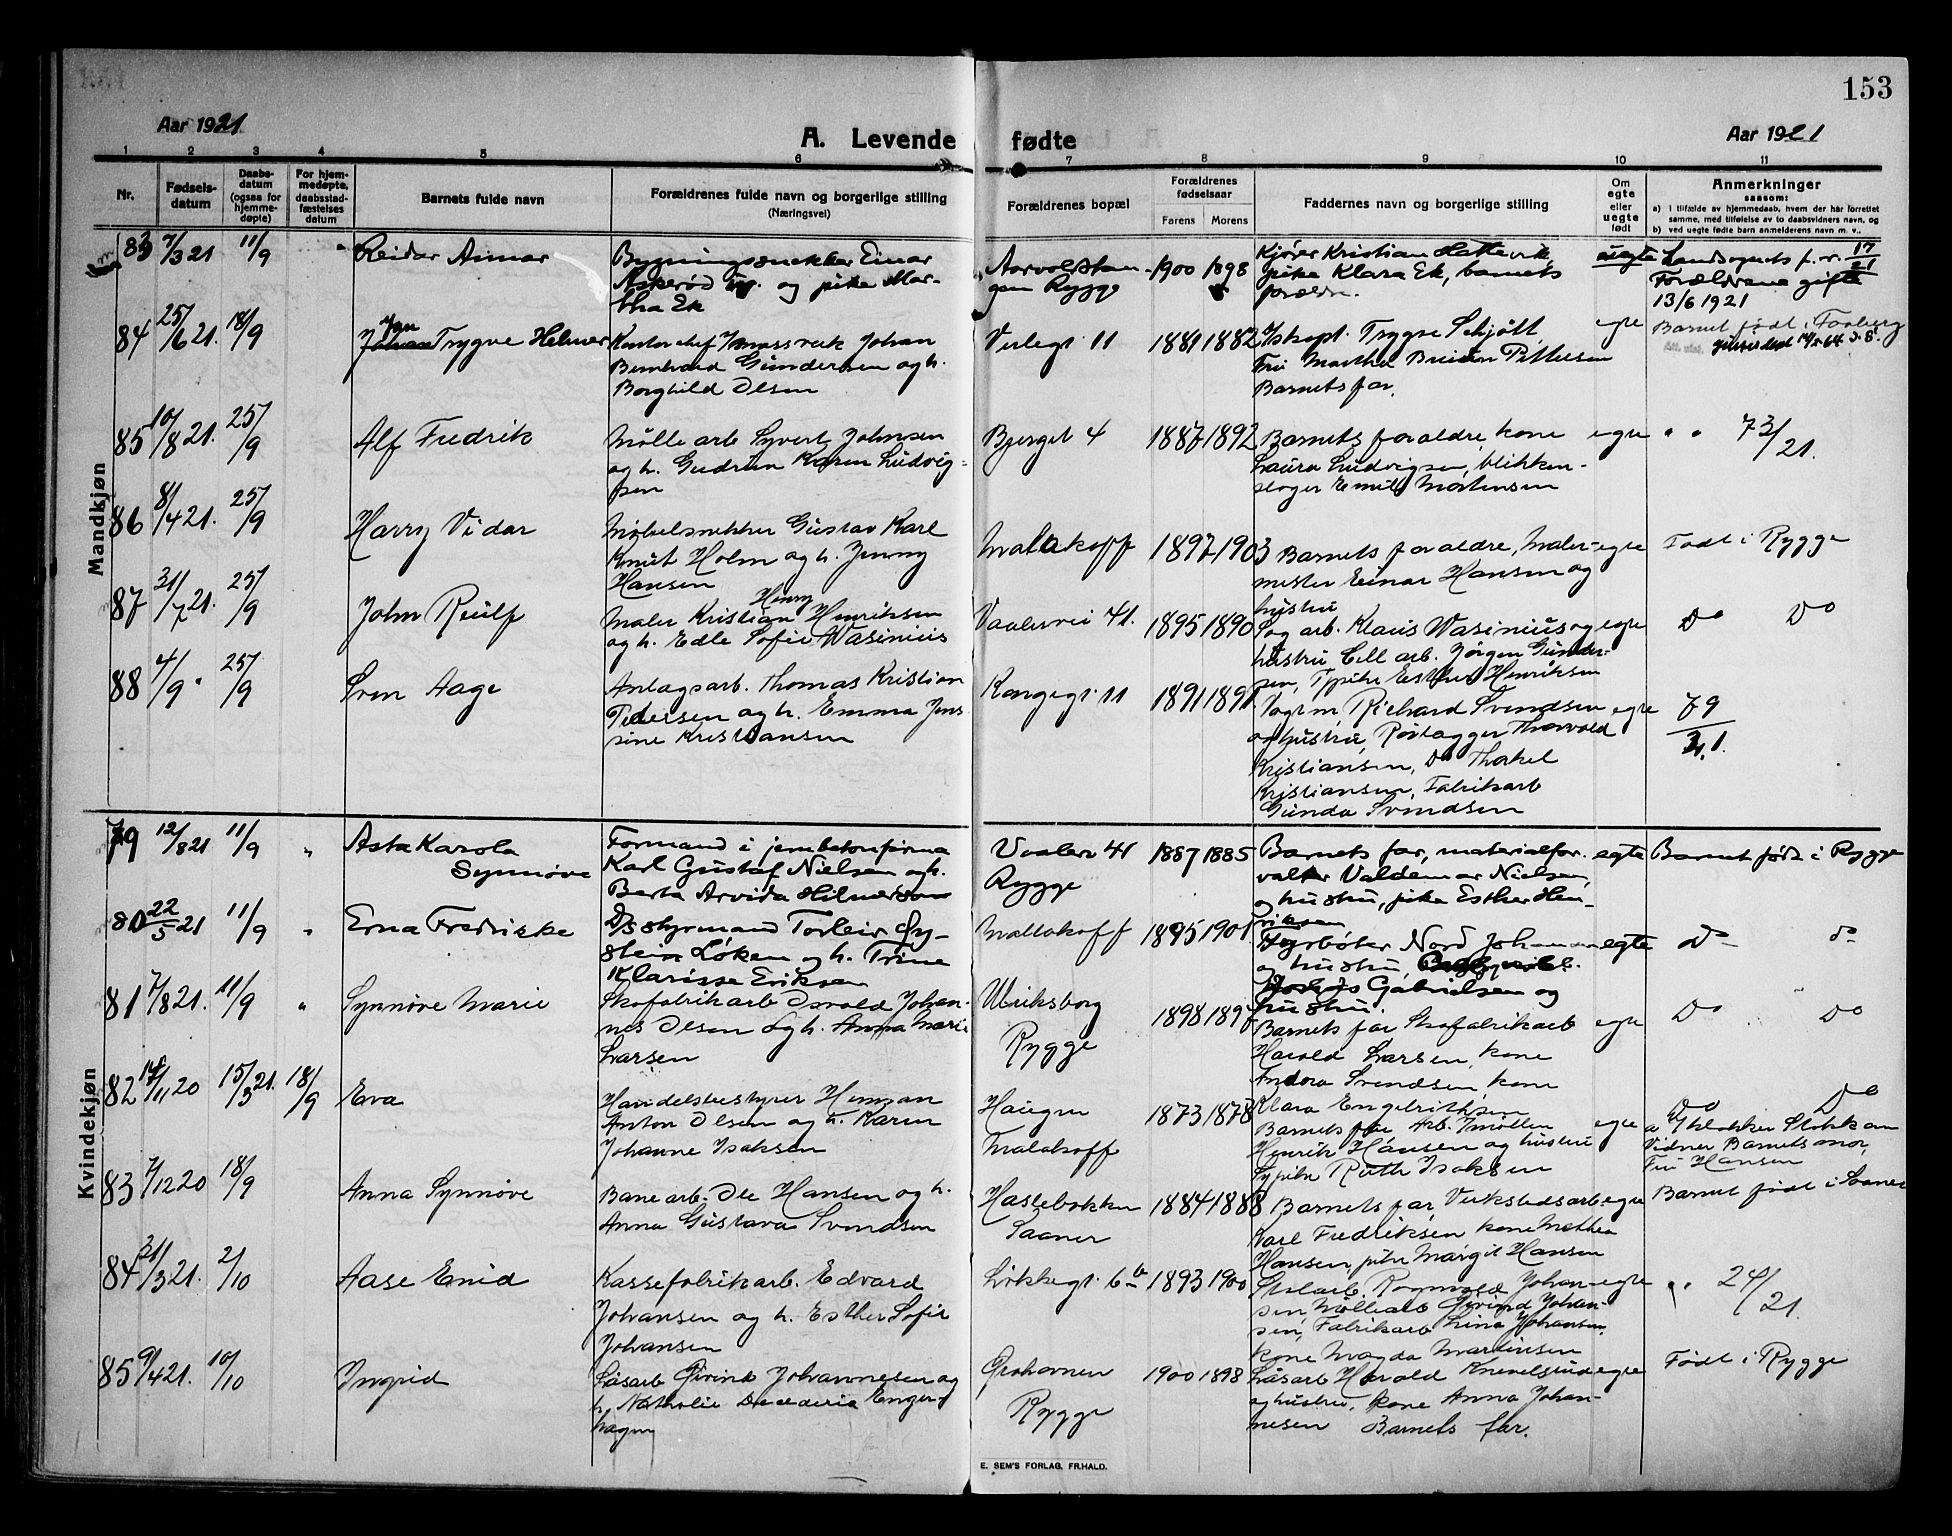 153
Aar 1921
A. Levende fødte
Aar 1921
1 2 3 4 5 6 7 8 9 10 11
Nr.
Fødsels-
datum
Daabs-
datum
(ogsaa for
hjemme-
døpte)
For hjem-
medøpte,
daabsstad-
fæstelses
datum
Barnets fulde navn
Forældrenes fulde navn og borgerlige stilling
(Næringsvei)
Forældrenes bopæl
Forældrenes
fødselsaar
Farens Morens
Faddernes navn og borgerlige stilling
Om
egte
eller
uegte
født
Anmerkninger
saasom:
a) I tilfælde av hjemmedaab, hvem der har forrettet
samme, med tilføielse av to daabsvidners navn, og
b) ved uegte fødte barn anmelderens navn m. v..
Mandkjøn
83 7/3 21 11/9 " Reidar Aimar
Bygningssnekker Einar
Askerød og pike Mar-
tha Ek
Rygge
1900 1898
Kjører Kristian Hattevik,
pike Klara Ek, barnets
forældre.
uegte
17/21
Forældrene gifte
13/6 1921
84 25/6 21. 18/9 Trygve Helmer
Johan
Bernhard Gundersen og h.
Borghild Olsen
Verlegt. 11
1881 1882
Trygve Schjött,
Barnets far,
egte
Barnet født i
85 10/8 21. 25/9 Alf Fredrik
Mølle arb Syvert Johnsen
og h. Gudrun Karen Ludvig-
sen
Bjerget 4
1887 1892
Barnets forældre, kone
Laura Ludvigsen, blikken-
slager Emil Mortensen
egte
" " 73/21.
86 8/4 21. 25/9 Harry Vidar
Møbelsnekker Gustav Karl
Knut Holm og h. Jenny
Hansen
Malakoff
1897 1903
Barnets forældre, Maler-
mester Einar Hansen og
hustru
egte
Født i Rygge
87 31/7 21. 25/9 John Reulf
Henry
Maler Kristian Henriksen
og h. Edle Sofie Wasinius
Vaalervei 41.
1895 1890
Sag arb. Klaus Wasinius og
hustru Cell arb. Jørgen Gunder-
sen, Esther Henriksen
egte
Do Do
88 4/9 " 25/9 Sven Aage
Anlagsarb. Thomas Kristian
Pedersen og h. Emma Jen-
sine Kristiansen
Kongegt. 11
1891 1891
Richard Svendsen
og hustru, Rørlægger Thorvald
Kristiansen, Do Thorkel
Kristiansen, Fabrikarb
Gunda Svendsen
egte
79/21.
Kvindekjøn
79 12/8 21 11/9 " Asta Karola
Synnøve
Formand i jernbetonfirma
Karl Gustaf Nielsen og h.
Berta Arvida Hilmerson
Vaalerv 41
Rygge
1887 1885
Barnets far, materialfor-
valter Valdemar Nielsen,
og hustru, pike Esther Hen-
riksen
egte
Barnet født i Rygge
80 22/5 21 11/9 " Erna Fredrikke
D/s styrmand Torleiv Øy-
stein Løken og h. Trine
Klarisse Eriksen
Mallakoff
1895 1901
Fyrbøter Nord Johannsen
og hustru,
Gabrielsen og
hustru.
egte
Do Do
81 7/8 21. 11/9 " Synnøve Marie
Skofabrikarb Osvald Johan-
nes Olsen og h. Anna Marie
Larsen
Ulriksborg
Rygge
1898
Barnets far Skofabrikarb
Harold Larsen, kone
Andora Svendsen, kone
Klara Engebrithsen
egte
Do Do
82 /11 20 15/3 21. 18/9 Eva
Handelsbestyrer Herman
Anton Olsen og h. Karen
Johanne Isaksen
Haugen
Malakoff
1873 1878
Barnets far Arb.
Henrik Hansen og hustru
Sypike Ruth Isaksen
egte
Do Do
a) Klokker Stokkan
Vidner Barnets mor,
Fru Hansen
83 7/12 20 18/9 Anna Synnøve
Bane arb. Ole Hansen og h.
Anna Gustava Svendsen
Hassebakken
Saaner
1884 1888
Barnets far, Verkstedsarb.
Karl Fredriksen kone Mathea
Hansen pike Margit Hansen
egte
Barnet født i Saaner
84 31/3 21. 2/10 Aase Enid
Kassefabrikarb. Edvard
Johansen og h. Esther Sofie
Johansen
Løkkegt. 6b
1893 1900
Ragnvald Johan-
sen, Møllearb Øivind Johan-
sen, Fabrikarb Lina Johansen,
kone Magda Martinsen
egte
" 24/21.
85 9/4 21. 10/10 Ingrid
Laasarb Øivind Johannesen og
h. Nathalie
Rygge
1900 1898
Laasarb Harold Knevelsrud
og hustru, kone Anna Johan-
nesen Barnets far.
egte
Født i Rygge
E. SEM'S FORLAG, FR.HALD.